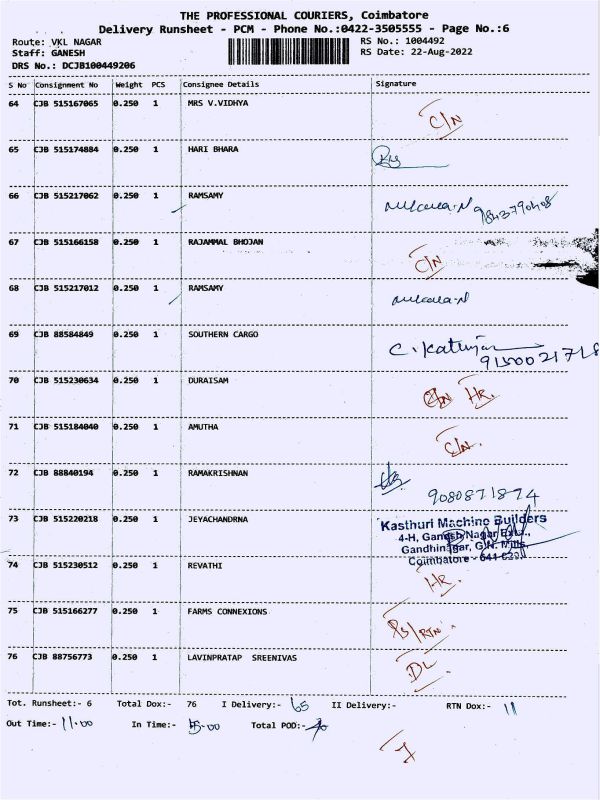 THE PROFESSIONAL COURIERS, Coimbatore
Delivery Runsheet - PCM - Phone No.:0422-3505555 - Page No.:6
Route: VKL NAGAR
RS No.: 1004492
Staff: GANESH
RS Date: 22-Aug-2022
DRS No.: DCJB100449206
S No Consignment No Weight PCS Consignee Details Signature
64 CJB 515167065 0.250 1 MRS V.VIDHYA C/N
65 CJB 515174884 0.250 1 HARI BHARA
66 CJB 515217062 0.250 1 RAMSAMY 9843790408
67 CJB 515166158 0.250 1 RAJAMMAL BHOJAN C/N
68 CJB 515217012 0.250 1 RAMSAMY
69 CJB 88584849 0.250 1 SOUTHERN CARGO
9150021718
70 CJB 515230634 0.250 1 DURAISAM HR.
71 CJB 515184040 0.250 1 AMUTHA C/N.
72 CJB 88840194 0.250 1 RAMAKRISHNAN
9080871874
73 CJB 515220218 0.250 1 JEYACHANDRNA Kasthuri Machine Builders
4-H, Ganesh Nagar Extn.,
Gandhinagar, G.N. Mills,
Coimbatore - 641
74 CJB 515230512 0.250 1 REVATHI HR.
75 CJB 515166277 0.250 1 FARMS CONNEXIONS /RTN.
76 CJB 88756773 0.250 1 LAVINPRATAP SREENIVAS DL
Tot. Runsheet:- 6 Total Dox:- 76 I Delivery:- 65 II Delivery:- RTN Dox:- 11
Out Time:- 11.00 In Time:- 5.00 Total POD:-